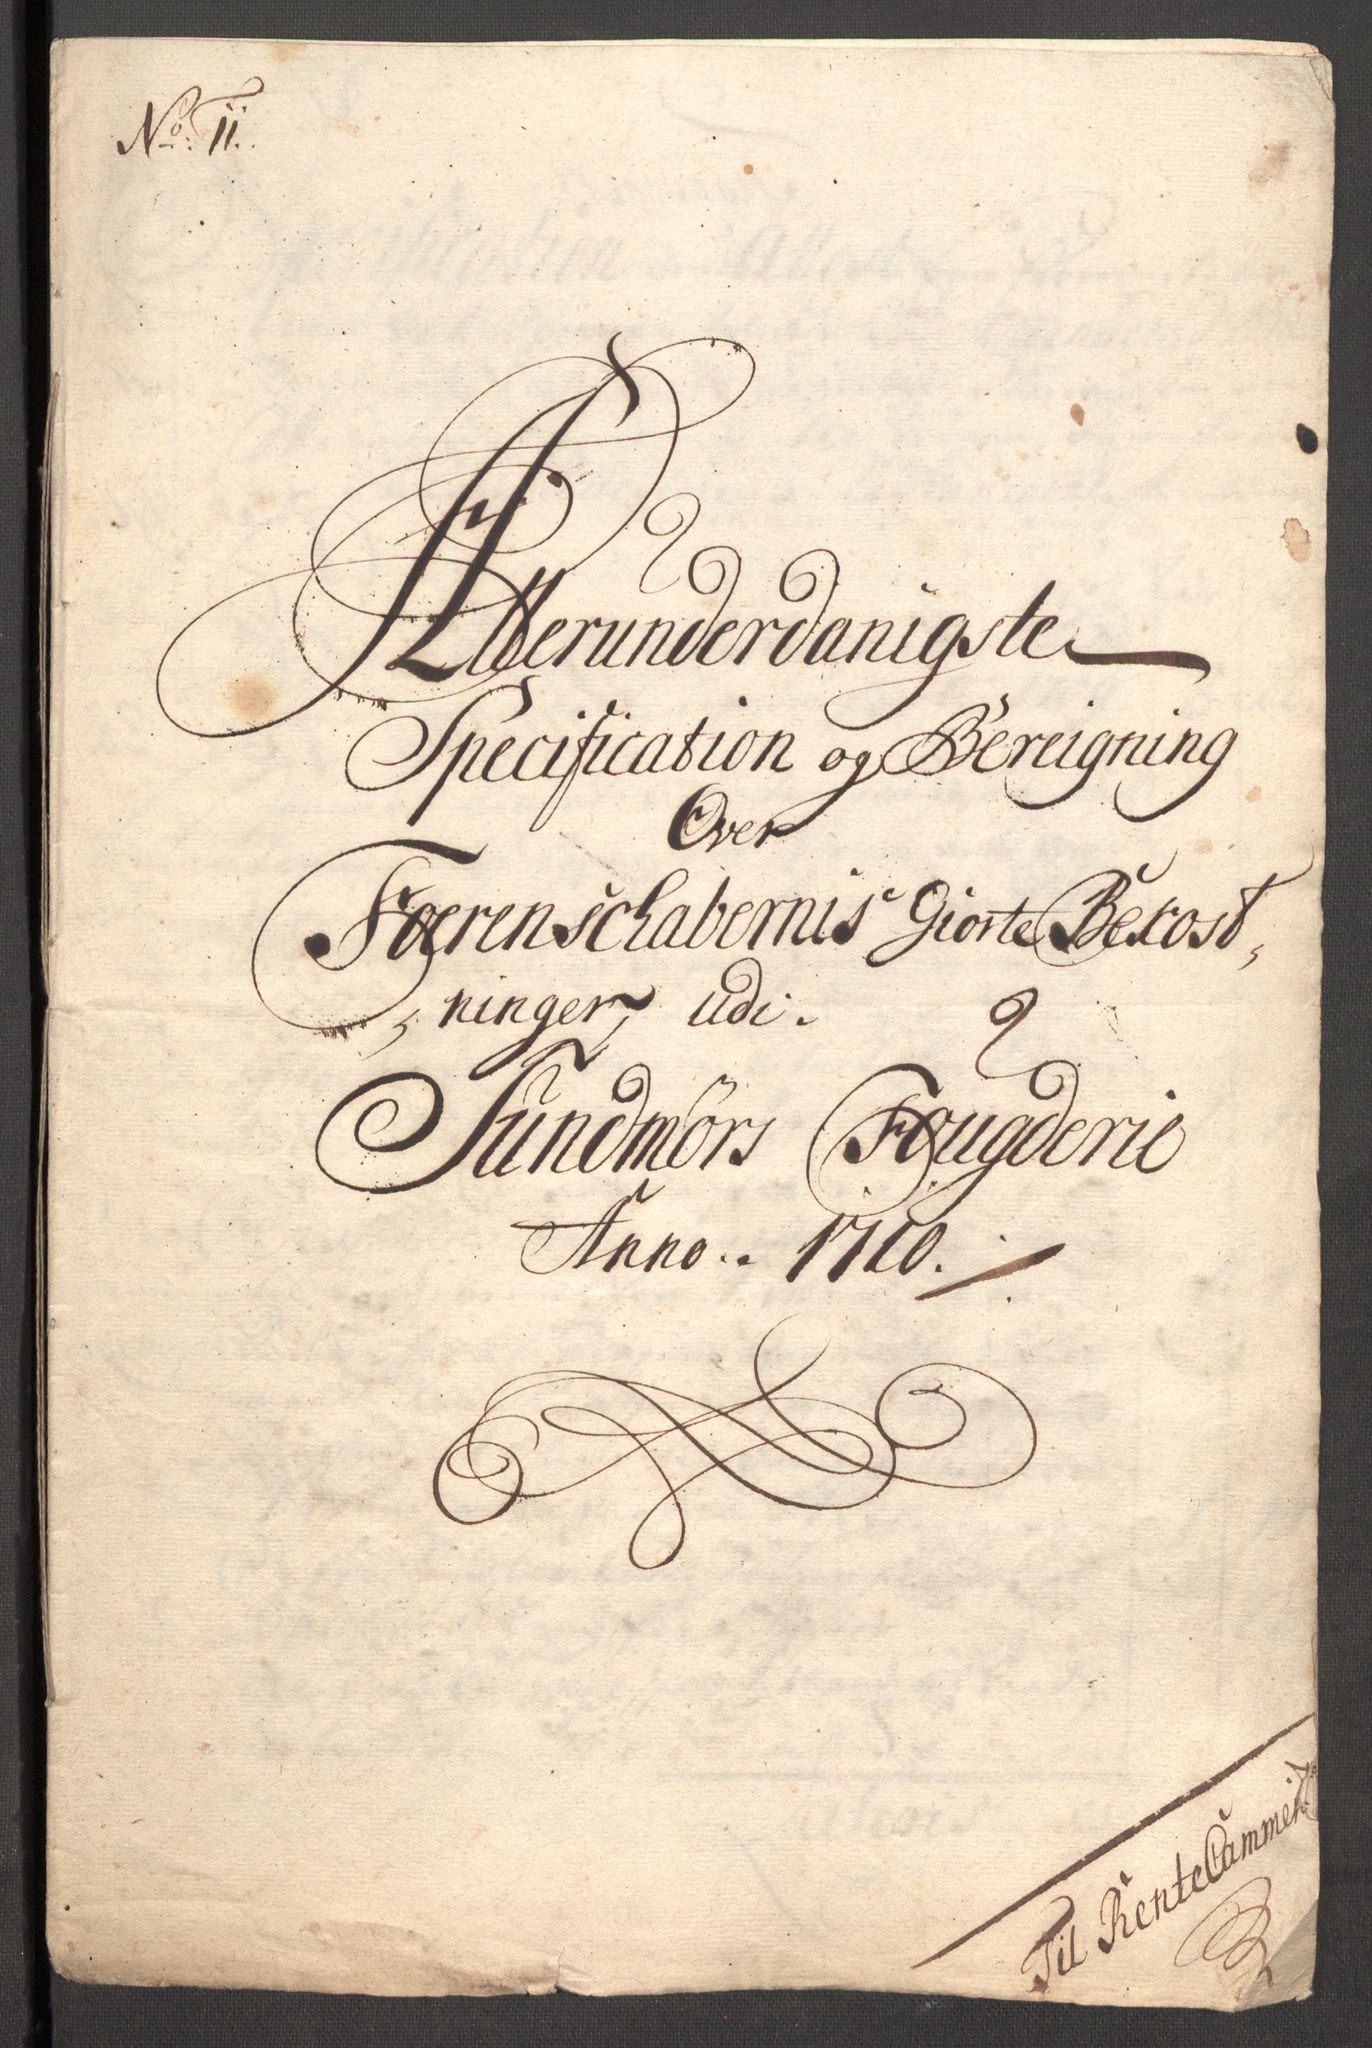 No. 11.
Allerunderdanigste
Specification og Bereigning
Over
Foerenschabernis Giorte Bekost,
, ninger, udi.
Sundmörs Fougderie
Anno.. 1710.
Til RenteCammerit